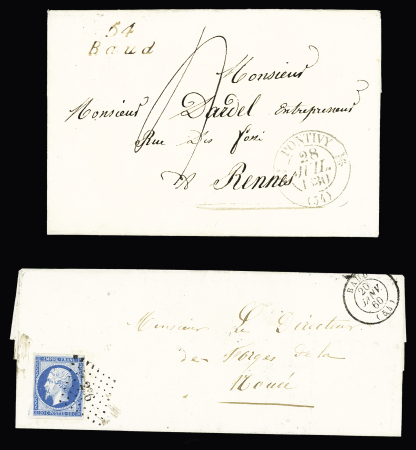 54
Baud
Monsieur
Monsieur Dardel Entrepreneur
Rue des
à Rennes
PONTIVY
28
JUIL.
1830
(54)
BAUD
20
JANV.
60
(54)
Monsieur Le Directeur
des Forges de la
Nouée
EMPIRE FRANC